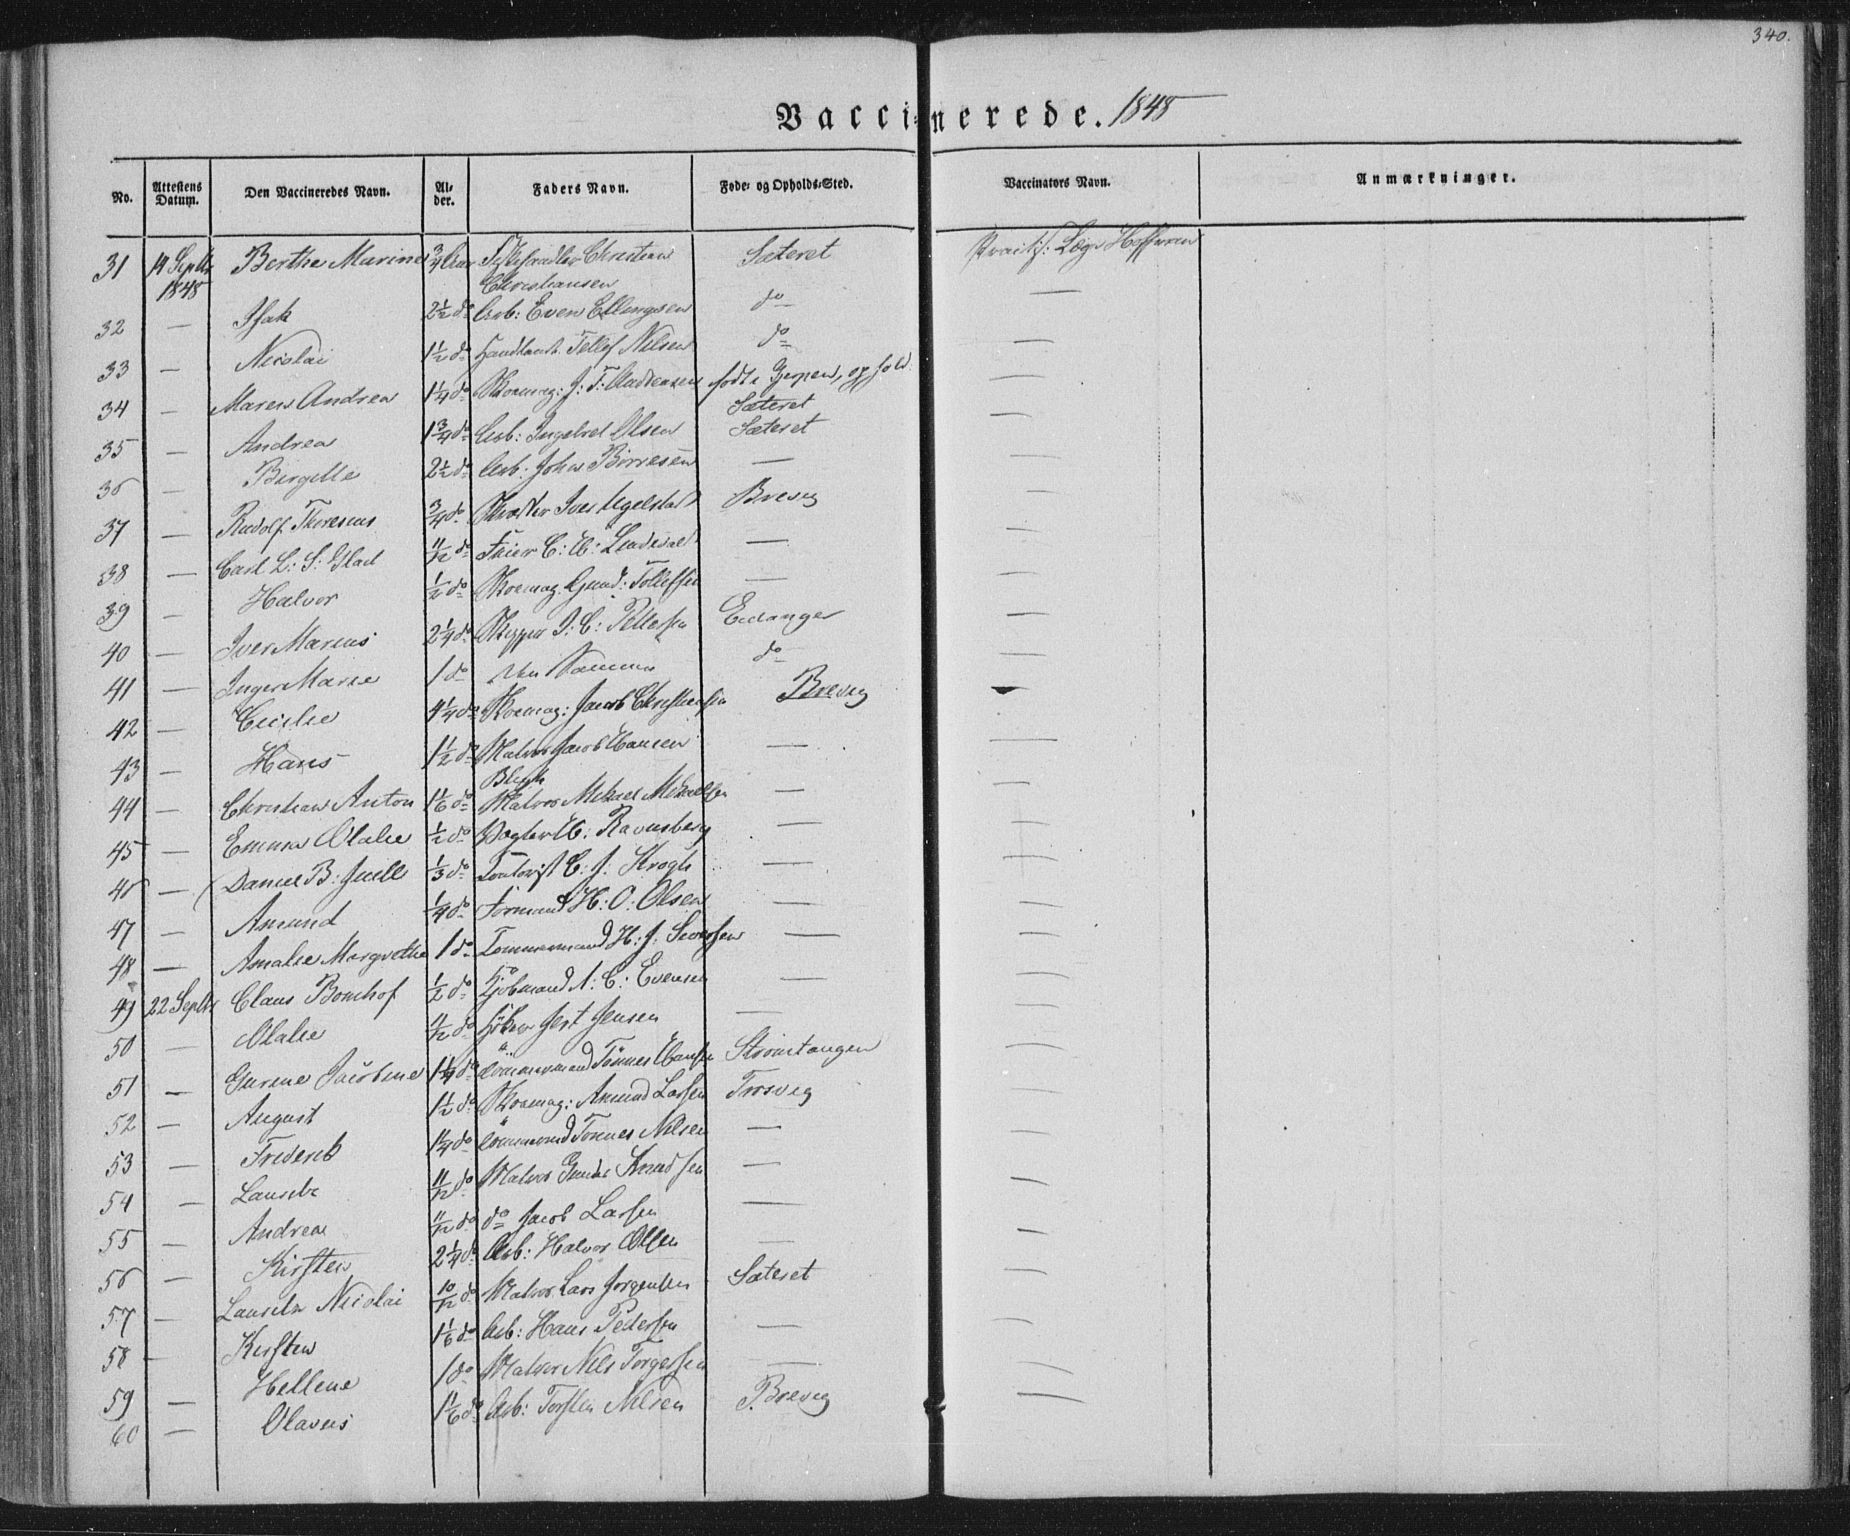 340.
Vaccinerede. 1848
No. Attestens Datum. Den Vaccineredes Navn. Al- der. Faders Navn. Føde- og Opholds-Sted. Vaccinators Navn. Anmærkninger.
31 14 Septbr 1848 Berthe Marine 3/4 Aar Christian Christiansen Sæteret Practis: Læge
32 — Isak 2 1/2 do Arb: Even Ellingsen do —
33 — Nicolai 1 1/2 do Tellef Nilsen do —
34 — Maren Andrea 1 1/4 do Skoemag: J: T: født i Gjerpen, ophold. Sæteret —
35 — Andrea 1 3/4 do Arb: Ingebret Olsen Sæteret —
36 — Bergitte 2 1/2 do Arb: Johan Börresen — —
37 — Rudolf Thoresius 3/4 do Iver Brevig —
38 — Carl L: S: Glad 11/12 do — —
39 — Halvor 1/2 do Skoemag. Gund: Tollefsen — —
40 — Iver Marius 2 1/4 do Skipper I: C: Eidanger —
41 — Inger Marie 1 do den Samme do —
42 — Cecilie 4 1/4 do Skoemag: Jacob Christensen Brevig —
43 — Hans 1 1/2 do Matros Jacob Hansen — —
44 — Christian Anton 1 1/6 do Matros Mikael Mikaelsen — —
45 — Emma Olalie 1/2 do Vægter — —
46 — Daniel B: Juell 1/3 do C: J: Krogh — —
47 — Amund 1/4 do Formand H: O: Olsen — —
48 — Amalie Margrethe 1 do Tømmermand H: J: — —
49 22 Septbr Claus Bomhof 1/2 do Kjöbmand A: C: Evensen — —
50 — Olalie 11/12 do Höker Jert Jensen — —
51 — Gurine Jacobine 1 1/4 do Tömmermand Tönnes Hansen Strömtangen —
52 — August 1 1/2 do Skoemag: Amund Larsen Trosvig —
53 — Frederik 1 1/4 do Tömmermand Tönnes Nilsen — —
54 — Lauritz 11/12 do Matros Gunder Knudsen — —
55 — Andrea 11/12 do do Jacob Larsen — —
56 — Kirsten 2 1/4 do Arb: Halvor Olsen — —
57 — Lauritz Nicolai 10/12 do Matros Lars Jorgensen Sæteret —
58 — Kirsten 1 1/6 do Arb: Hans Pedersen — —
59 — Hellene 1 do Matros Nils Torgersen — —
60 — Olavus 1 1/6 do Arb: Torsten Nilsen Brevig —